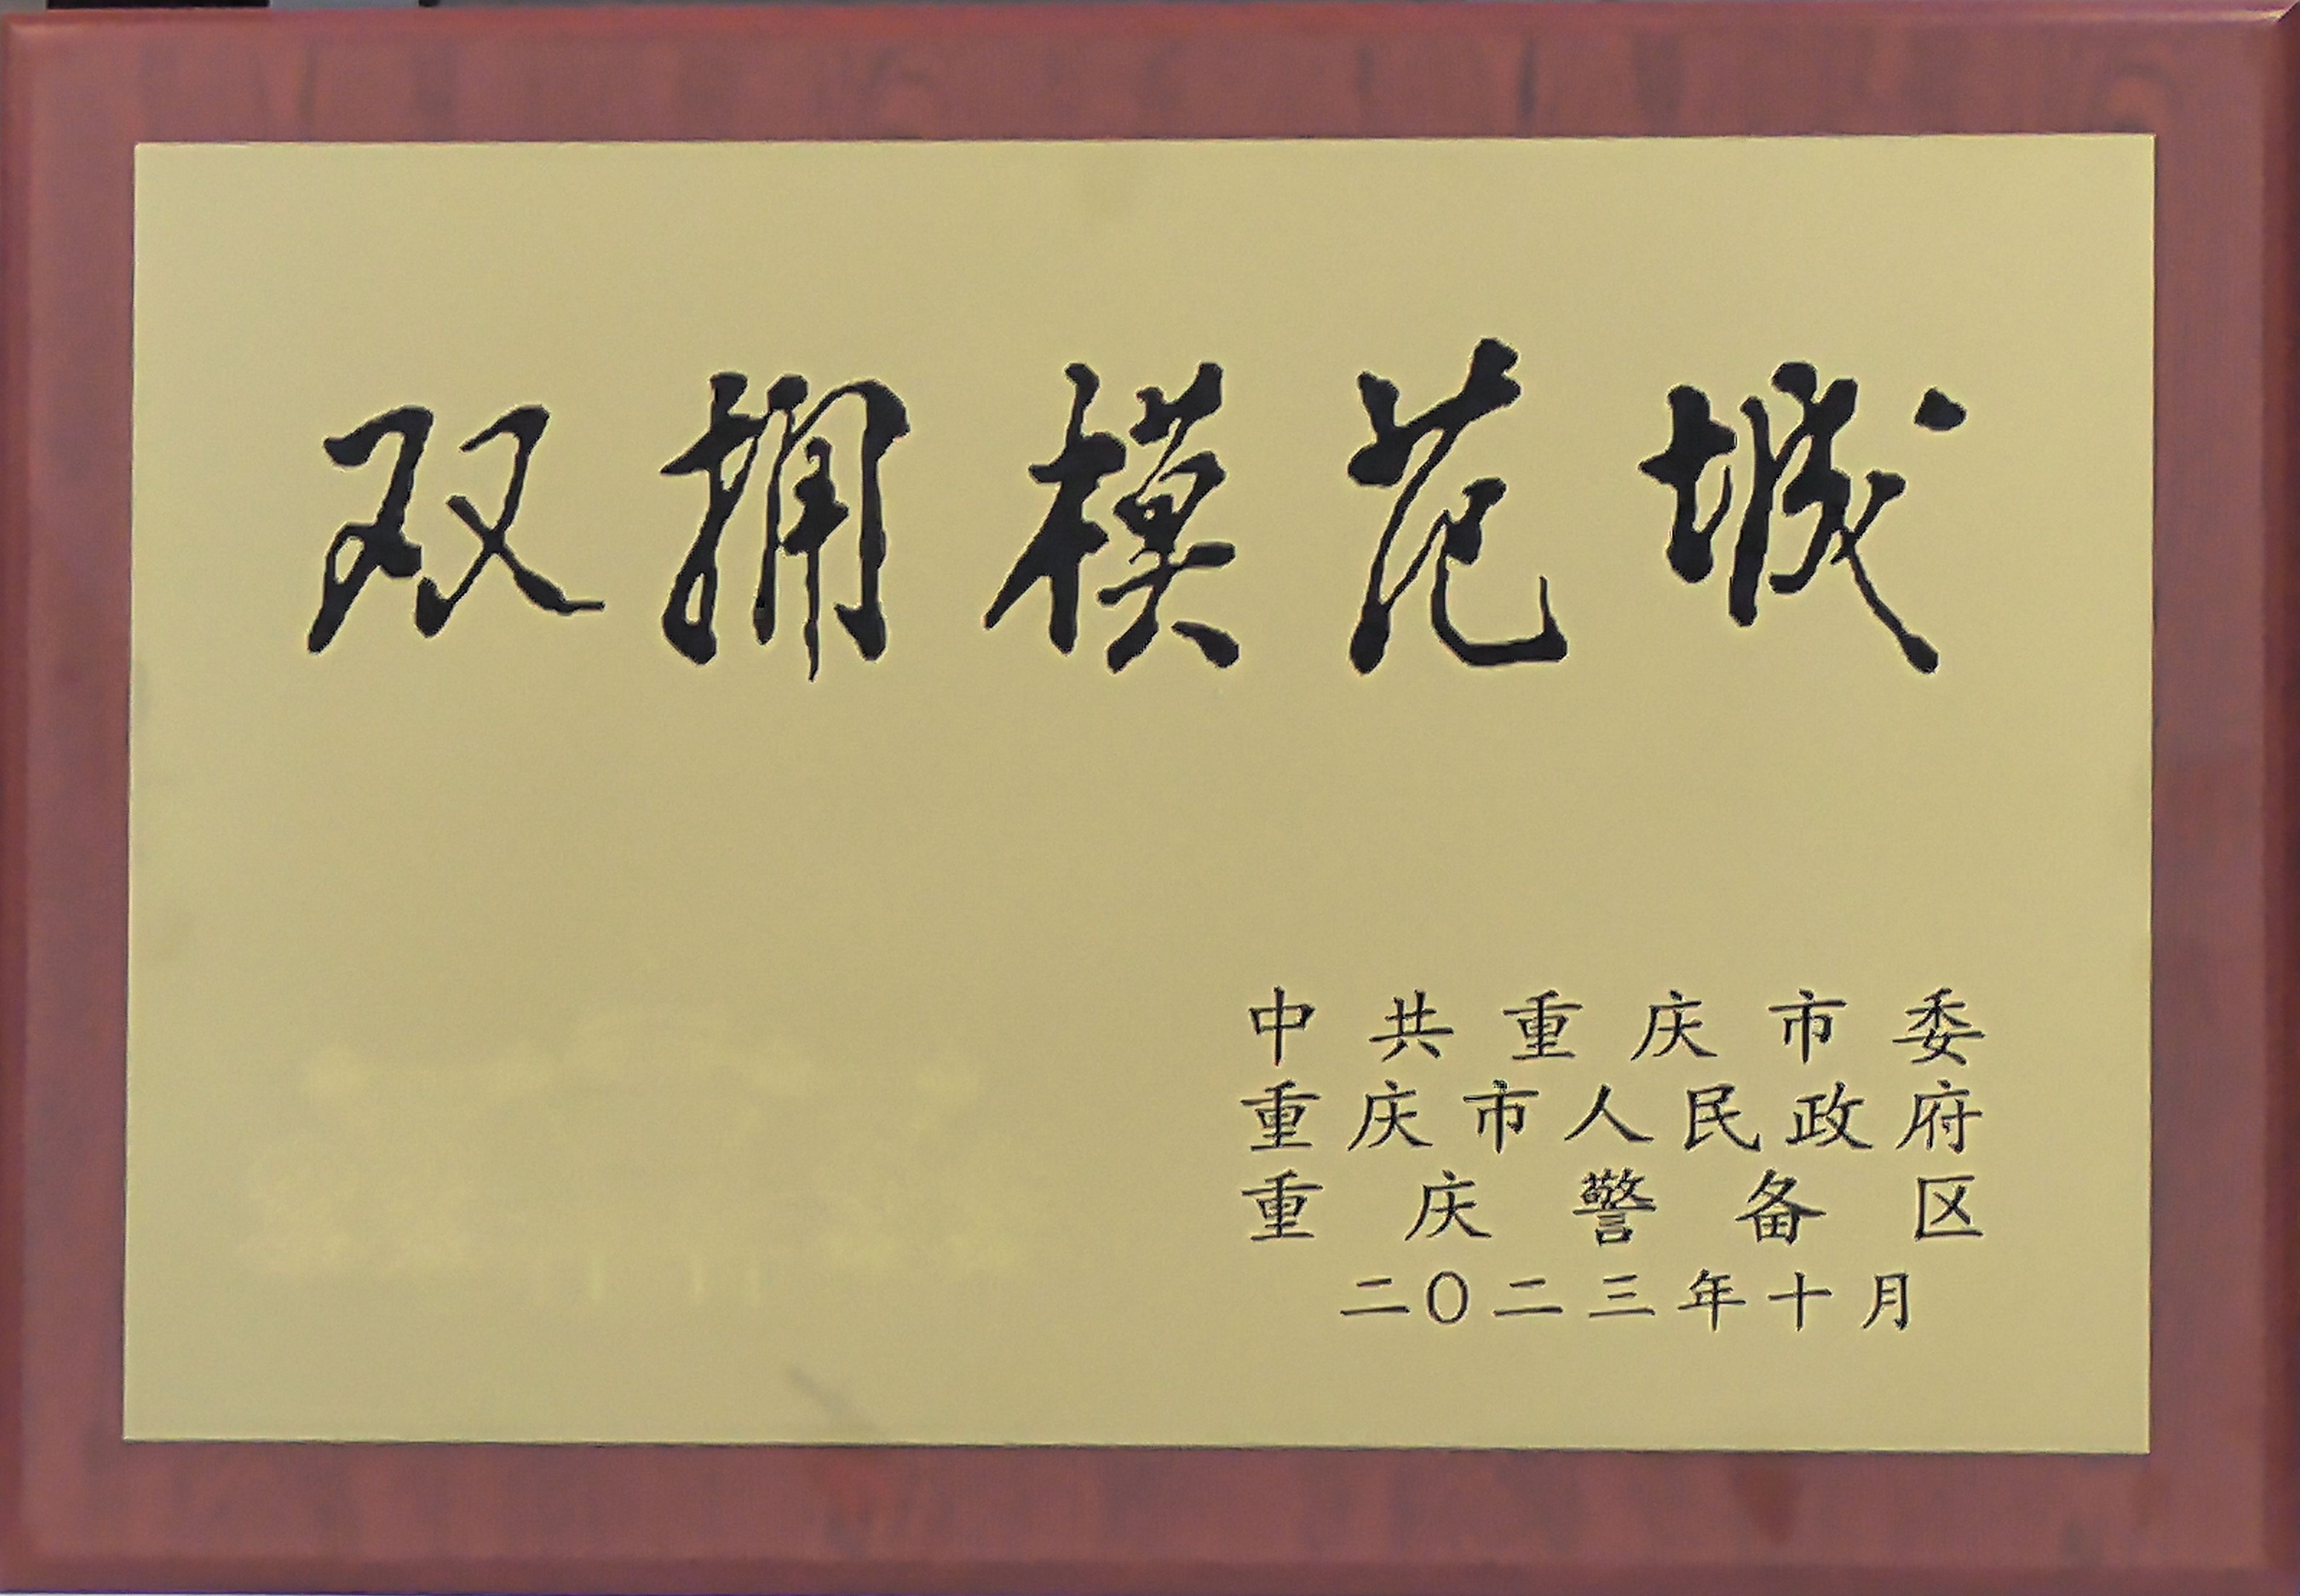 双拥模范城
中共重庆市委
重庆市人民政府
重庆警备区
二〇二三年十月